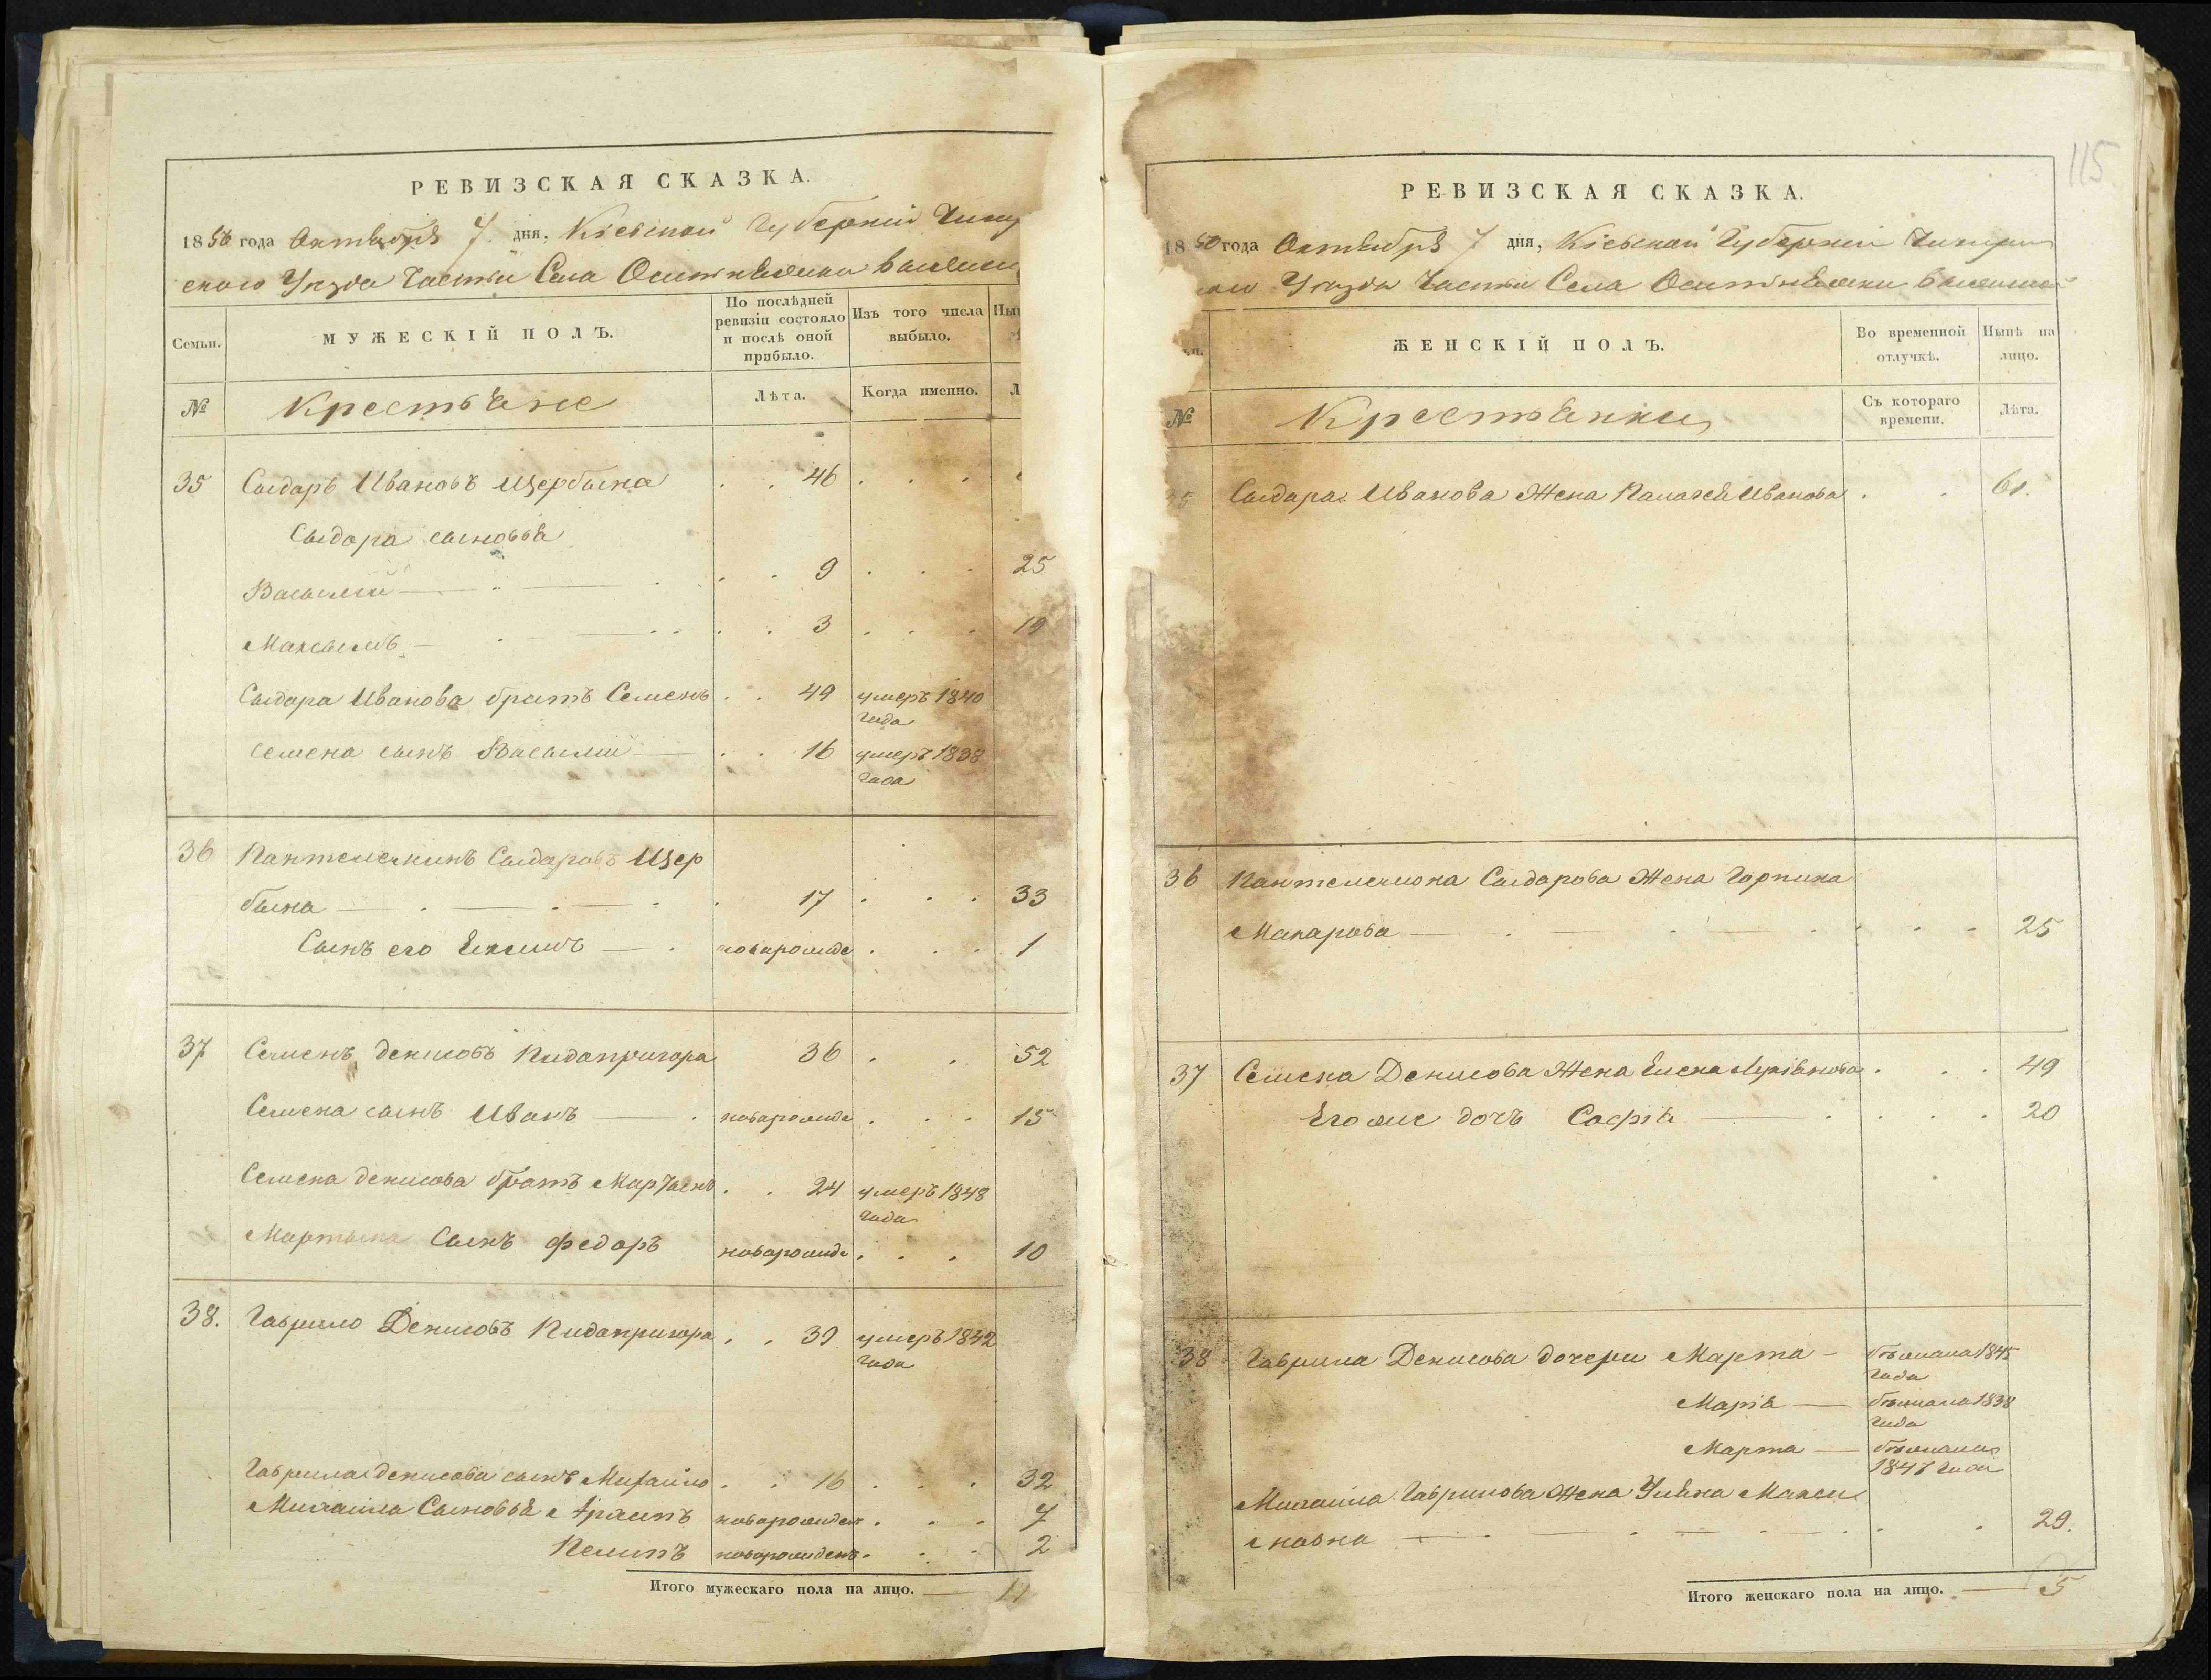 РЕВИЗСКАЯ СКАЗКА.
1850 года Октября 7 дня, Кіевской Губерніи Чигир
ского Уезда Части Села Оситняжки
Семьи.
МУЖЕСКІЙ ПОЛЪ.
По послѣдней ревизіи состояло и послѣ оной прибыло.
Изъ того числа выбыло.
№
Крестьяне
Лѣта.
Когда именно.
Л
35 Сыдаръ Ивановъ Щербына . . 46 . . .
Сыдора сыновья
Васылій . . 9 . . . 25
Максымъ . . 3 . . . 19
Сыдора Иванова братъ Семенъ . . 49 умеръ 1840
года
Семена сынъ Васылій . . 16 умеръ 1838
года
36 Пантелемонъ Сыдаровъ Щер
бына 17 . . . 33
Сынъ его новарожде . . . 1
37 Семенъ Денисовъ Пидапригора 36 . . 52
Семена сынъ Иванъ новарожде . . . 15
Семена Денисова братъ Мартынъ . . 24 умеръ 1848
года
Мартына Сынъ Федоръ новарожде . . . 10
38. Гаврило Денисовъ Пидапригора . . 39 умеръ 1842
года
Гаврила Денисова сынъ Михайло . . 16 . . . 32
Михайла Сыновья новарожден . . . 7
новарожденъ . . . 2
Итого мужескаго пола на лицо. — 11
115
РЕВИЗСКАЯ СКАЗКА.
1850 года Октября 7 дня, Кіевской Губерніи Чигирин
Уезда Части Села Оситняжки
ЖЕНСКІЙ ПОЛЪ.
Во временной отлучкѣ.
Нынѣ на лицо.
№
Крестьянки
Съ котораго времени.
Лѣта.
35 Сыдара Иванова Жена Палагея Иванова . . 61.
36 Пантелемона Сыдарова Жена Горпина
Макарова . . . 25
37 Семена Денисова Жена Елена . . . 49
Его же дочь Софія . . . 20
38 Гаврила Денисова дочери Марта — 1845
года
Марія — 1838
года
Марта —
года
Михайла Гаврилова Жена Ульяна Макси
мовна . . 29.
Итого женскаго пола на лицо. — 5